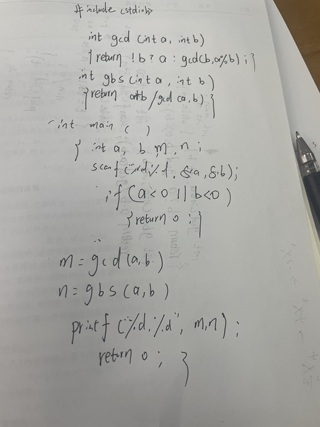 #include <stdio.h>
int gcd (int a, int b)
{return !b ? a : gcd(b,a%b);}
int gbs (int a, int b)
{return a*b/gcd(a,b)}
int main ( )
{ int a, b, m, n;
scanf("%d%d", &a, &b);
if (a<0 || b<0)
{return 0;}
m=gcd(a,b)
n=gbs(a,b)
printf("%d.%d", m,n);
return 0; }